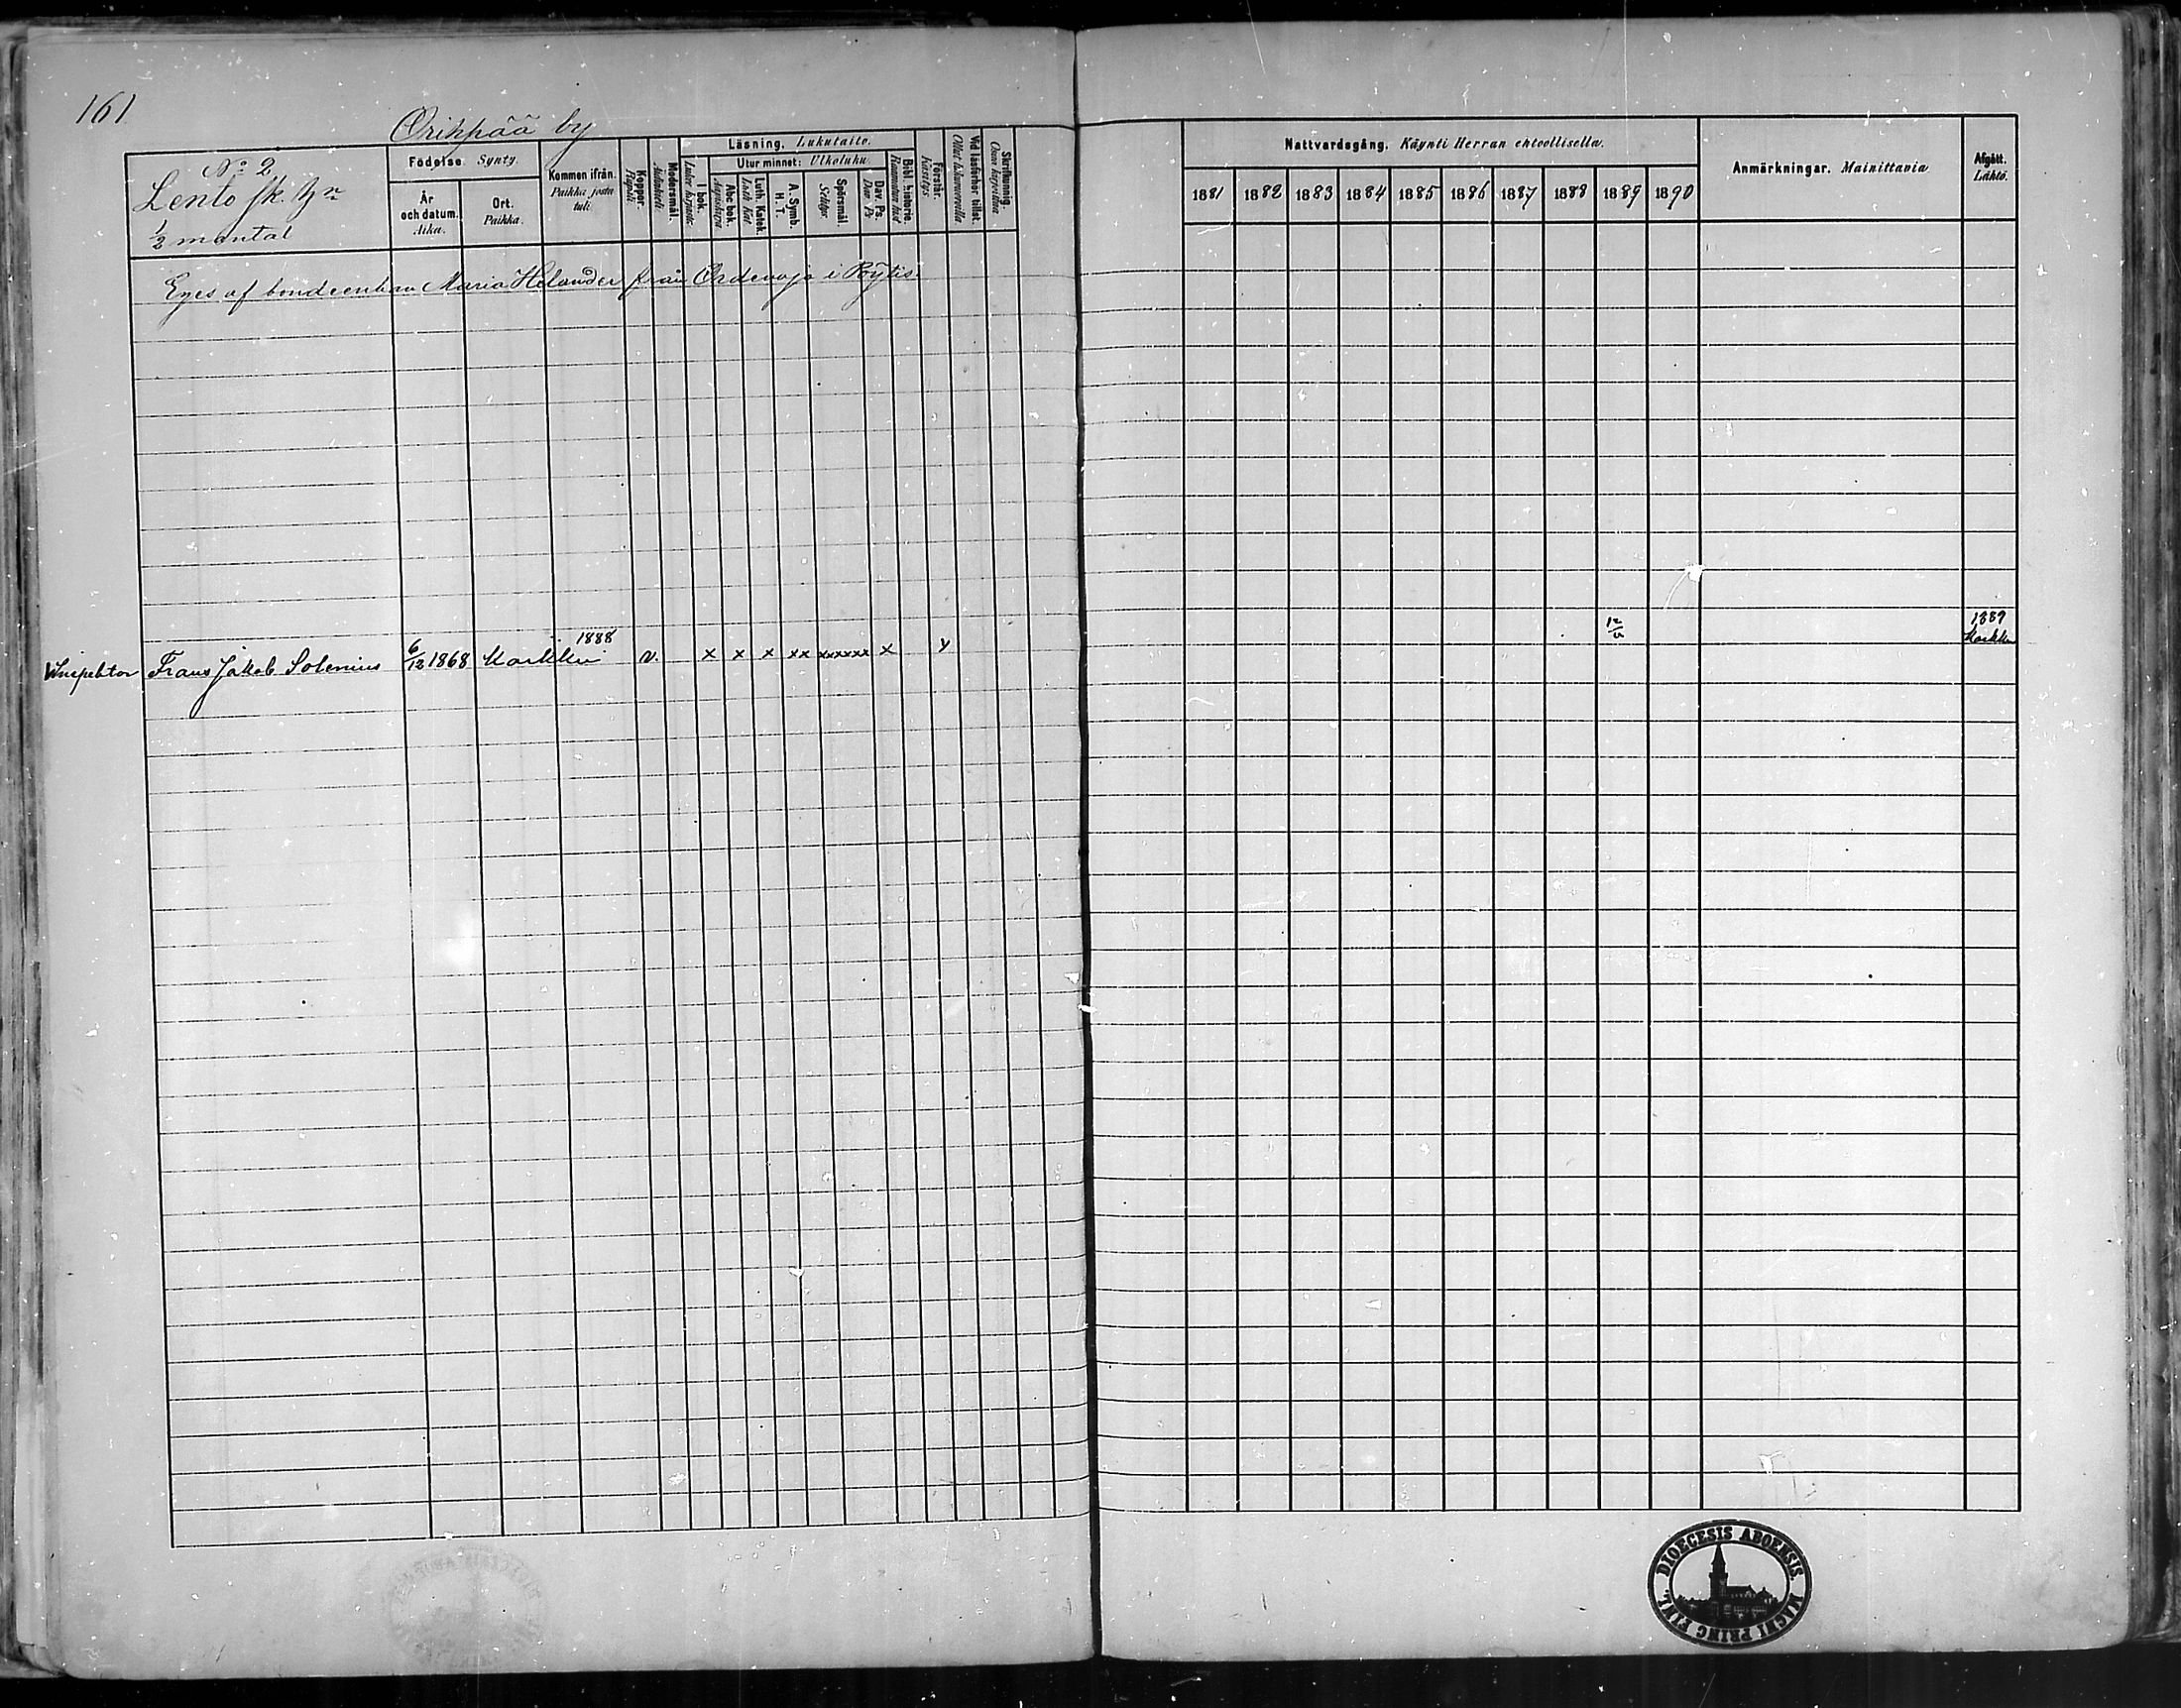 161
Orihpää by
No 2
Lento sk. h:n
1/2 mantal
Födelse. Synty.
År och datum. Aika.
Ort. Paikka.
Kommen ifrån. Paikka josta tuli.
Koppor. Rupuli.
Modersmål. Äidinkieli.
Läsning. Lukutaito.
I bok. Luku kirjasta.
Utur minnet: Ulkoluku.
Abc bok. Aapiskirja
Luth. Katek. Luth Kat.
A. Symb. H. T.
Spörsmål. Selitys.
Dav. Ps. Daw. Ps
Bibl. historie.
Förstår. Käsitys.
Vid läsförhör tillst.
Skrifkunnig.
Nattvardsgång. Käynti Herran ehtoollisella.
1881 1882 1883 1884 1885 1886 1887 1888 1889 1890
Anmärkningar. Mainittavia
Afgått. Lähtö.
Eges af bondeenkan Maria Helander från Ordenoja i Pöytis.
1888
12/5
1889
Markku
Inspektor Frans Jakob Solenius 6/12 1868 Markku v. x x x xx xxxxxx x y
DIOECESIS ABOENSIS. MAGNI PRINC FINL.